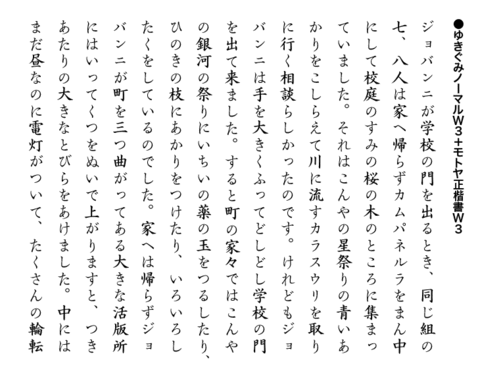 ●ゆきぐみノーマルW3＋モトヤ正楷書W3
ジョバンニが学校の門を出るとき、同じ組の
七、八人は家へ帰らずカムパネルラをまん中
にして校庭のすみの桜の木のところに集まっ
ていました。それはこんやの星祭りの青いあ
かりをこしらえて川に流すカラスウリを取り
に行く相談らしかったのです。けれどもジョ
バンニは手を大きくふってどしどし学校の門
を出て来ました。すると町の家々ではこんや
の銀河の祭りにいちいの葉の玉をつるしたり、
ひのきの枝にあかりをつけたり、いろいろし
たくをしているのでした。家へは帰らずジョ
バンニが町を三つ曲がってある大きな活版所
にはいってくつをぬいで上がりますと、つき
あたりの大きなとびらをあけました。中には
まだ昼なのに電灯がついて、たくさんの輪転